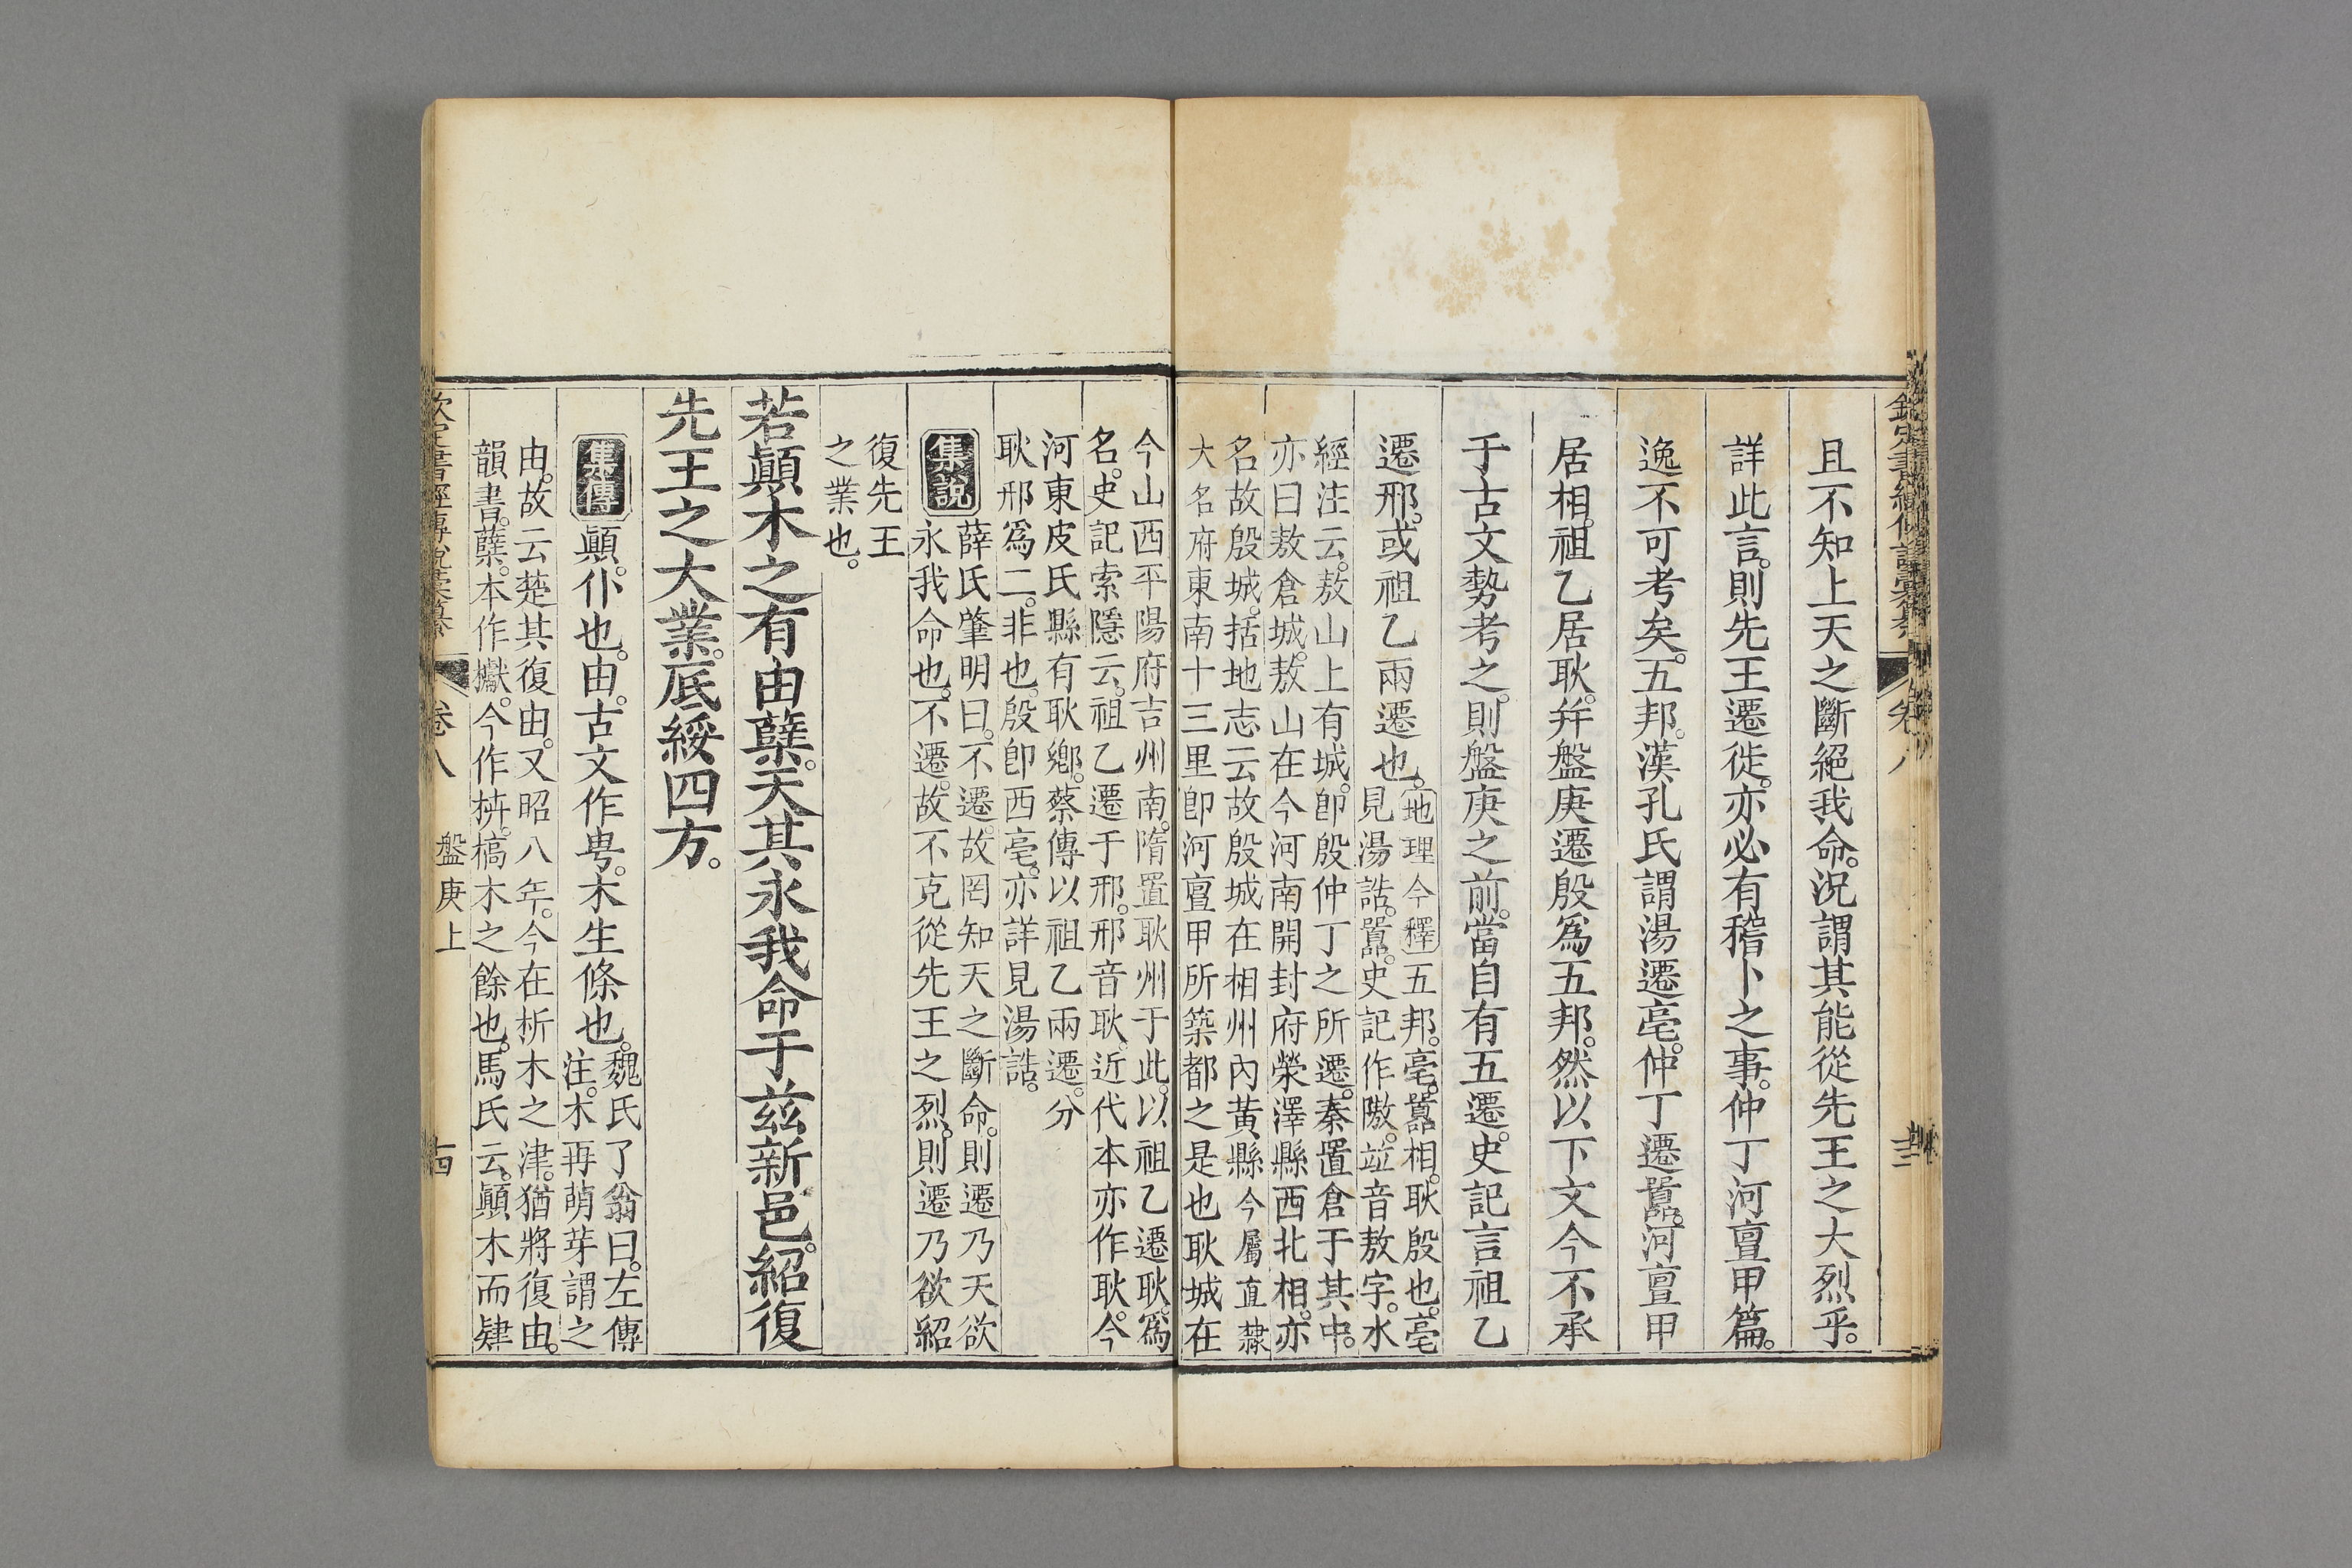 且不知上天之斷絕我命。況謂其能從先王之大烈乎。
詳此言。則先王遷徙。亦必有稽卜之事。仲丁河亶甲篇。
逸不可考矣。五邦。漢孔氏謂湯遷亳。仲丁遷囂。河亶甲
居相。祖乙居耿。幷盤庚遷殷爲五邦。然以下文今不承
于古文勢考之。則盤庚之前。當自有五遷。史記言祖乙
遷邢。或祖乙兩遷也。
地理今釋五邦。亳。囂。相。耿。殷也。亳
見湯誥。囂。史記作隞。竝音敖字。水
經注云。敖山上有城。卽殷仲丁之所遷。秦置倉于其中。
亦曰敖倉城。敖山在今河南開封府滎澤縣西北。相。亦
名故殷城。括地志云故殷城在相州內黃縣今屬直隸
大名府東南十三里卽河亶甲所築都之是也耿城在
今山西平陽府吉州南。隋置耿州于此。以祖乙遷耿。爲
名。史記索隱云。祖乙遷于邢。邢音耿。近代本亦作耿。今
河東皮氏縣有耿鄉。蔡傳以祖乙兩遷。分
耿邢爲二。非也。殷卽西亳。亦詳見湯誥。
集說
薛氏肇明曰。不遷。故罔知天之斷命。則遷乃天欲
永我命也。不遷。故不克從先王之烈。則遷乃欲紹
復先王
之業也。
若顚木之有由蘖。天其永我命于茲新邑。紹復
先王之大業。厎綏四方。
集傳
顚。仆也。由。古文作甹。木生條也。
魏氏了翁曰。左傳
注。木再萌芽謂之
由。故云楚其復由。又昭八年。今在析木之津。猶將復由。
韻書。蘖。本作𣡌。今作枿。槁木之餘也。馬氏云。顚木而肄
欽定書經傳說彙纂
卷八
盤庚上
十四